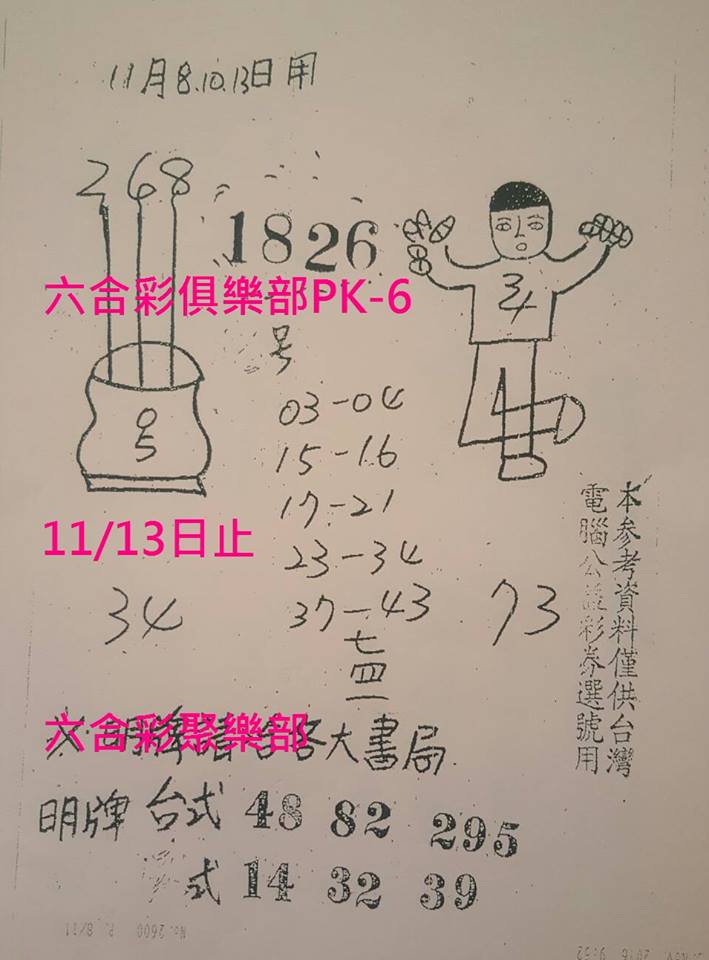 11月8.10.13日用
268
1826
六合彩俱樂部PK-6
34
号
05
03-04
15-16
17-21
11/13日止
23-34
37-43
34
93
七四一
本參考資料僅供台灣
電腦公益彩券選號用
六合彩聚樂部
大書局
明牌 台式 48 82 295
式 14 32 39
No. 2600 P. 8/11